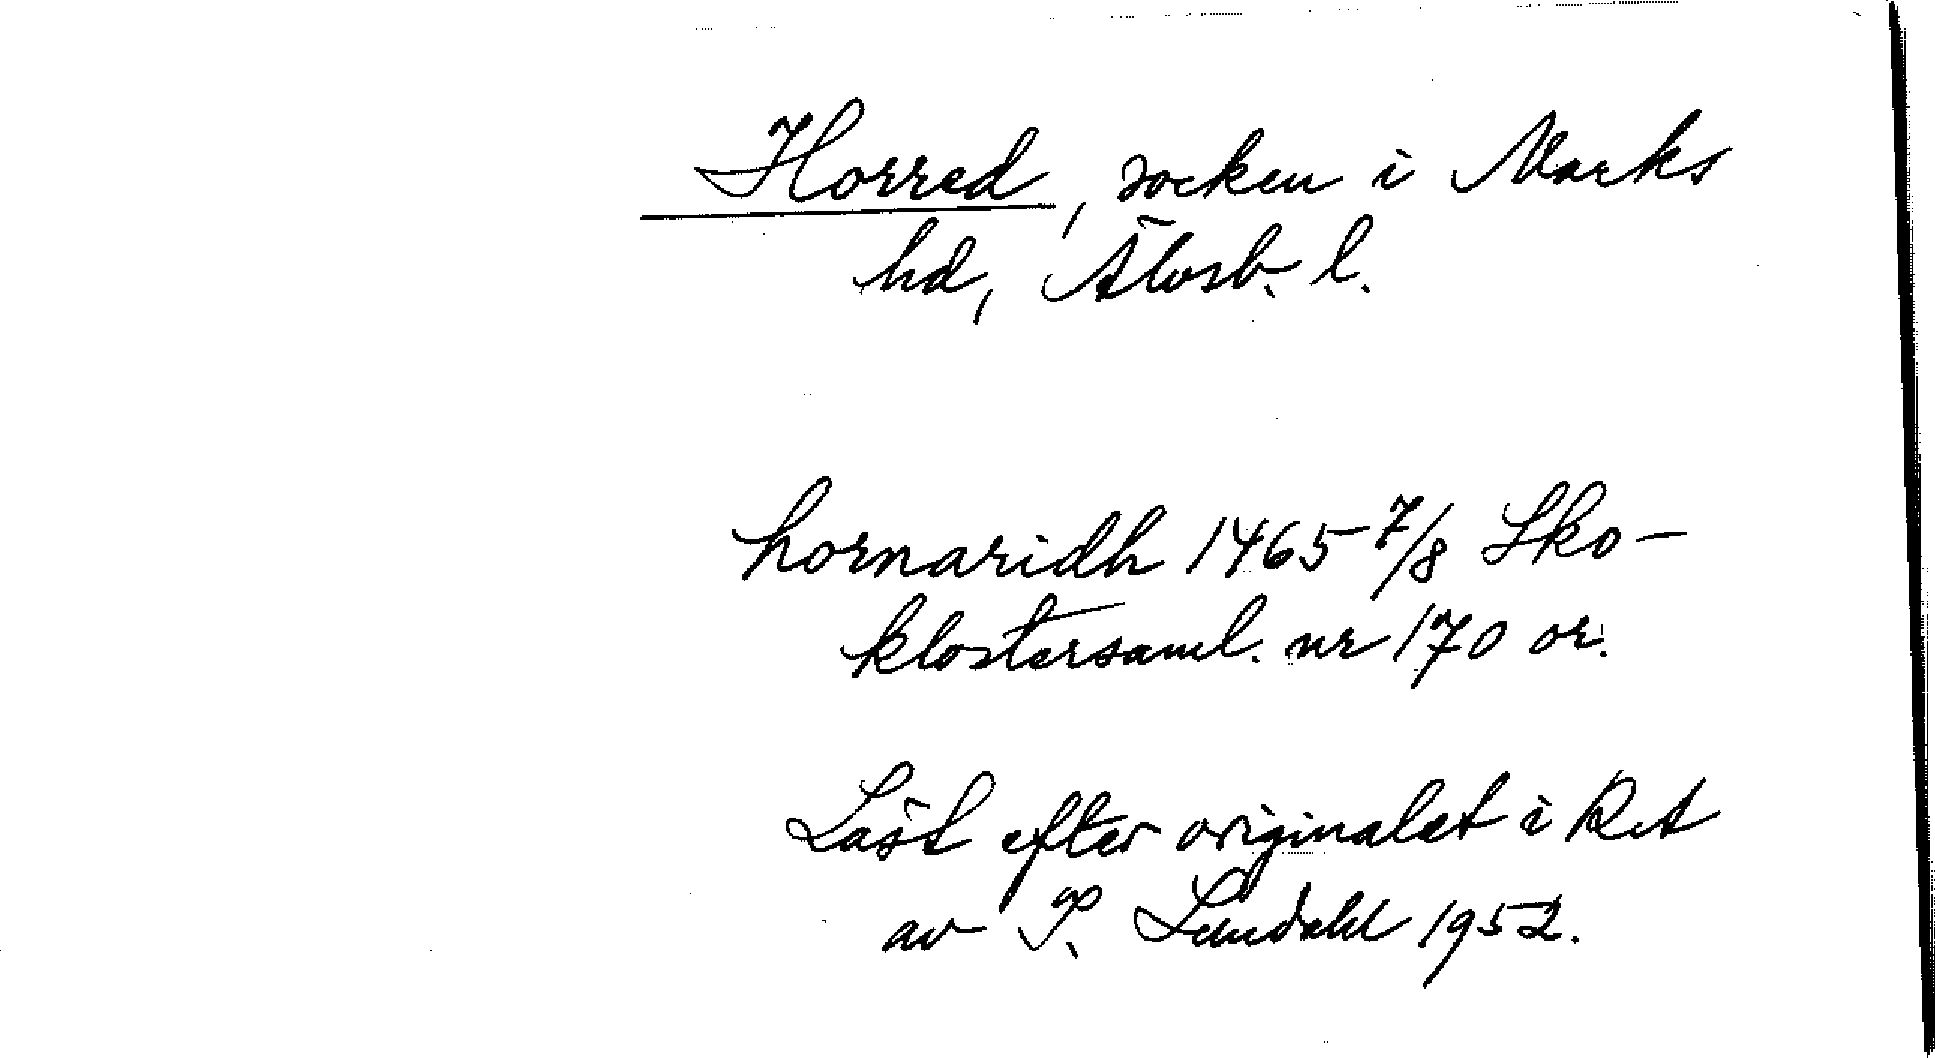 Horred, socken i Marks
hd, Älvsb. l.
hornaridh 1465 7/8 Sko-
klostersaml. nr 170 or.
Läst efter originalet i RA
av P. Lindahl 1952.